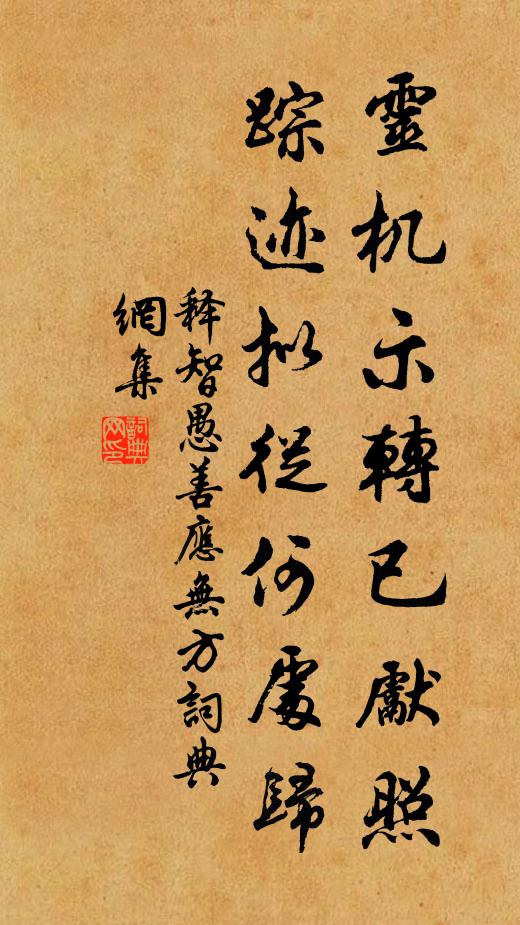 靈机示轉已獻照
踪迹拟從何處歸
释智愚善應無方詞典
網集
詞典
网印